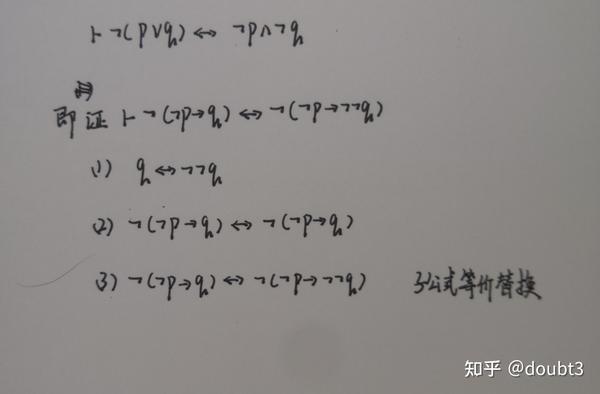 ⊢ ¬(p∨q) ↔ ¬p∧¬q
即证 ⊢ ¬(¬p→q) ↔ ¬(¬p→¬¬q)
(1) q ↔ ¬¬q
(2) ¬(¬p→q) ↔ ¬(¬p→q)
(3) ¬(¬p→q) ↔ ¬(¬p→¬¬q) 子公式等价替换
知乎 @doubt3